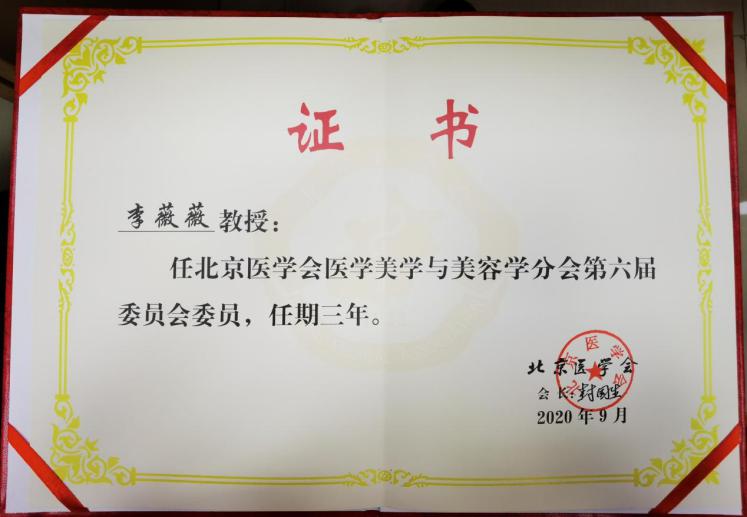 证 书
李薇薇 教授：
任北京医学会医学美学与美容学分会第六届
委员会委员，任期三年。
北京医学会
北京医学会
会 长：封国生
2020年9月